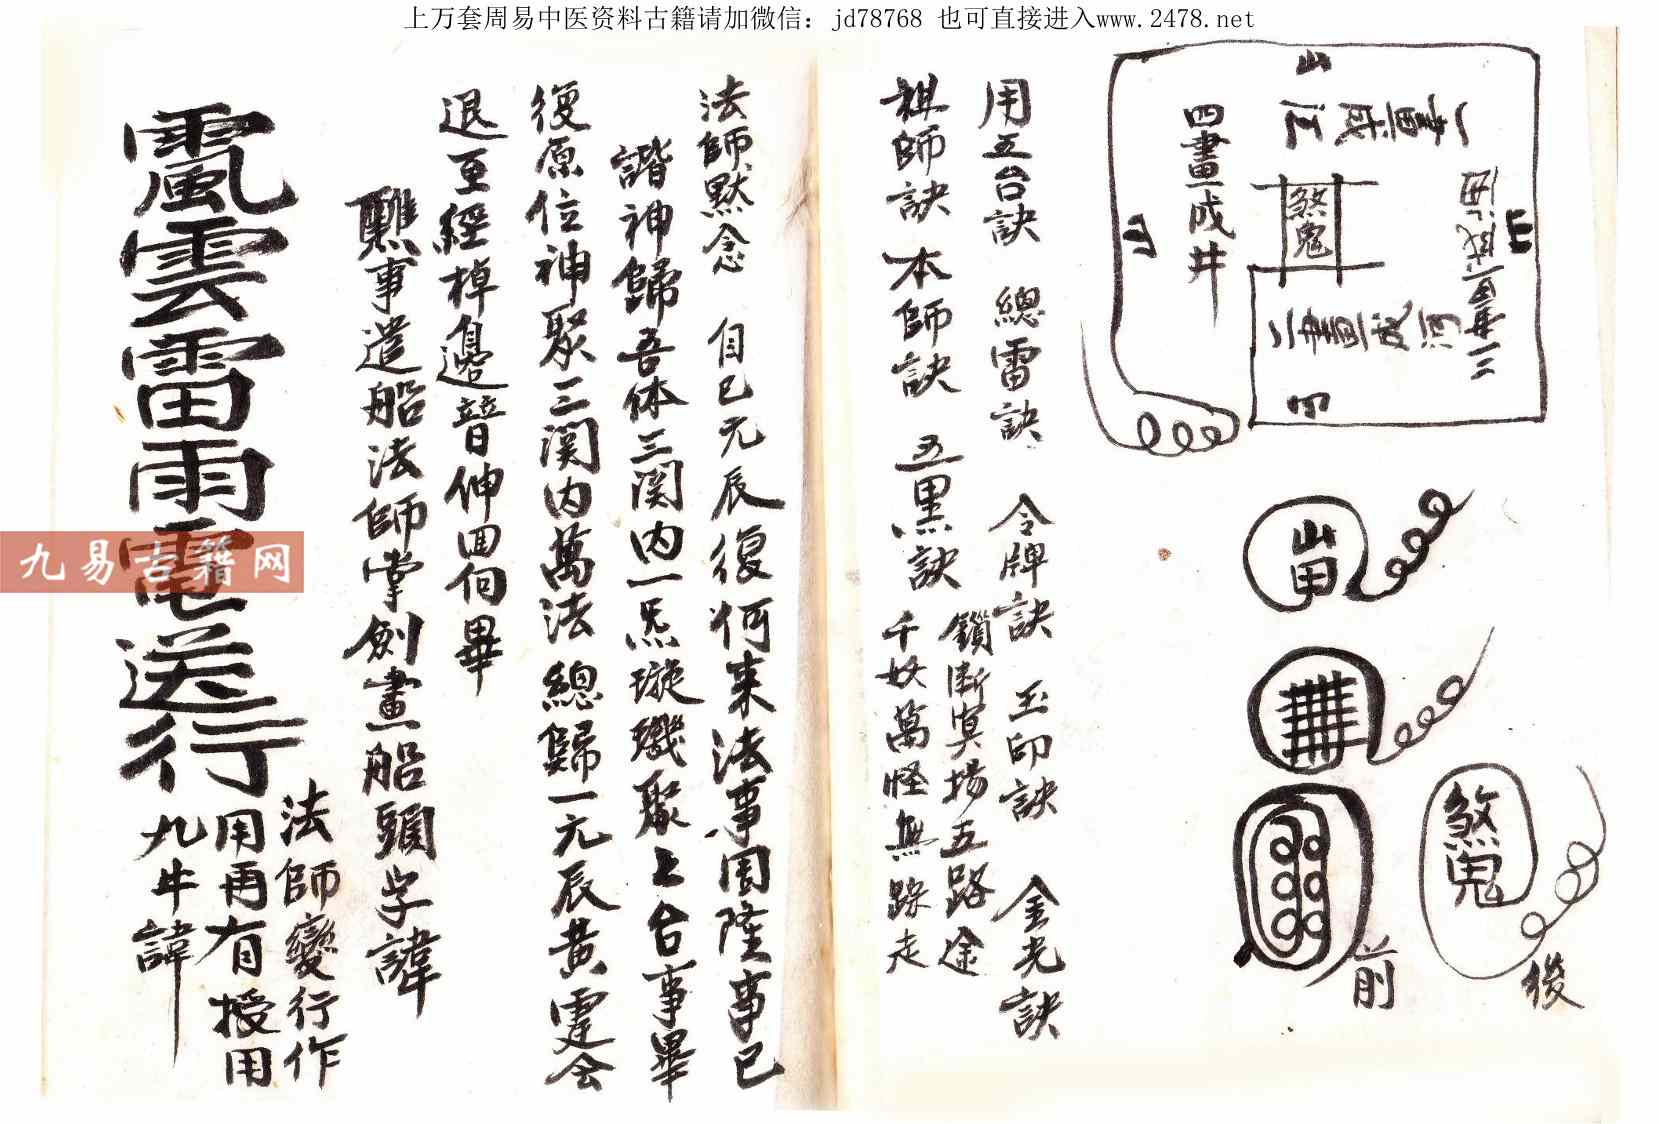 上万套周易中医资料古籍请加微信：jd78768 也可直接进入www.2478.net
山
一畫成江
四畫成井
煞鬼
三畫成海
山
山
二畫成河
四
前
煞鬼
後
用五台訣 總雷訣 令牌訣 玉印訣 金光訣
祖師訣 本師訣 五黑訣
鎖斷冥揚五路途
千妖萬怪無跡走
法師默念 自己元辰復何來法事周隆事已
諧神歸吾体三関内一炁璇璣聚上台事畢
復原位神聚三関内萬法總歸一元辰黄霆会
退至經棹邊暗伸回向畢
醮事遣船法師掌劍畫船頭字諱
靇雲雷雨電送行
法師變行作
用再有授用
九牛諱
九易古籍网